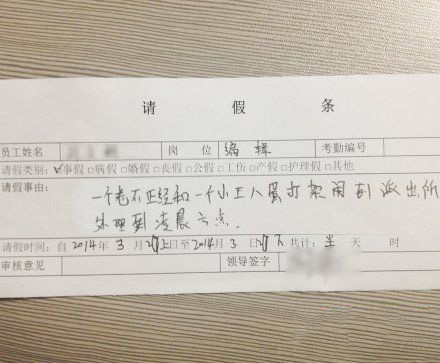 请 假 条
员工姓名 岗 位 编 辑 考勤编号
请假类别：☑事假□病假□婚假□丧假□公假□工伤□产假□护理假□其他
请假事由：
一个老不正经和一个小王八蛋打架闹到派出所
处理到凌晨六点.
请假时间：自2014年 3 月 日至2014月 3 日 共计：半 天 时
审核意见 领导签字